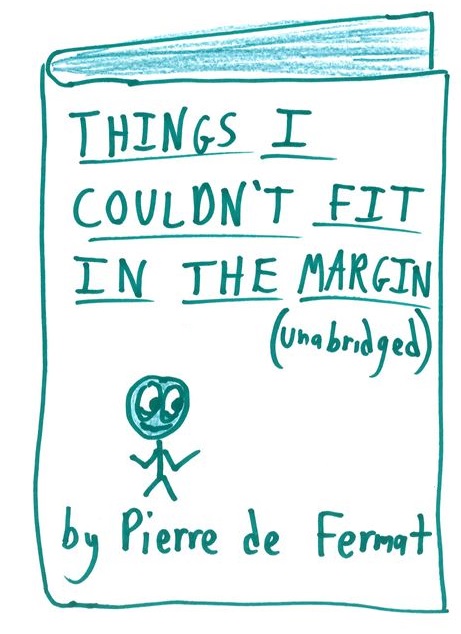 THINGS I
COULDN'T FIT
IN THE MARGIN
(unabridged)
by Pierre de Fermat